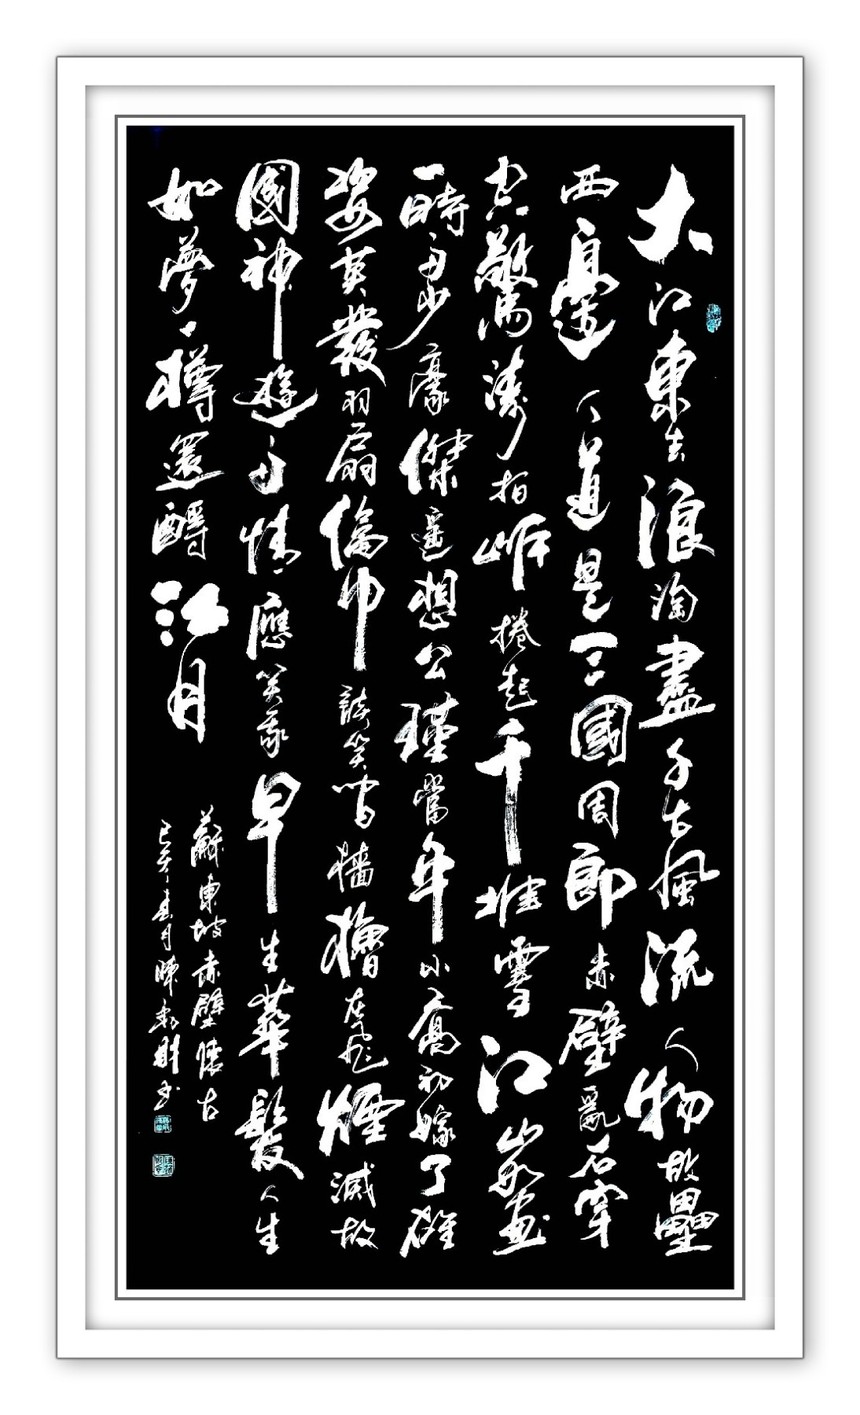 大江東去浪淘盡千古風流人物故壘
西邊人道是三國周郎赤壁亂石穿
空驚濤拍岸捲起千堆雪江山如畫
一時多少豪傑遙想公瑾當年小喬初嫁了雄
姿英發羽扇綸巾談笑間檣櫓灰飛煙滅故
國神遊多情應笑我早生華髮人生
如夢一樽還酹江月
蘇東坡赤壁懷古
己亥春月陳書